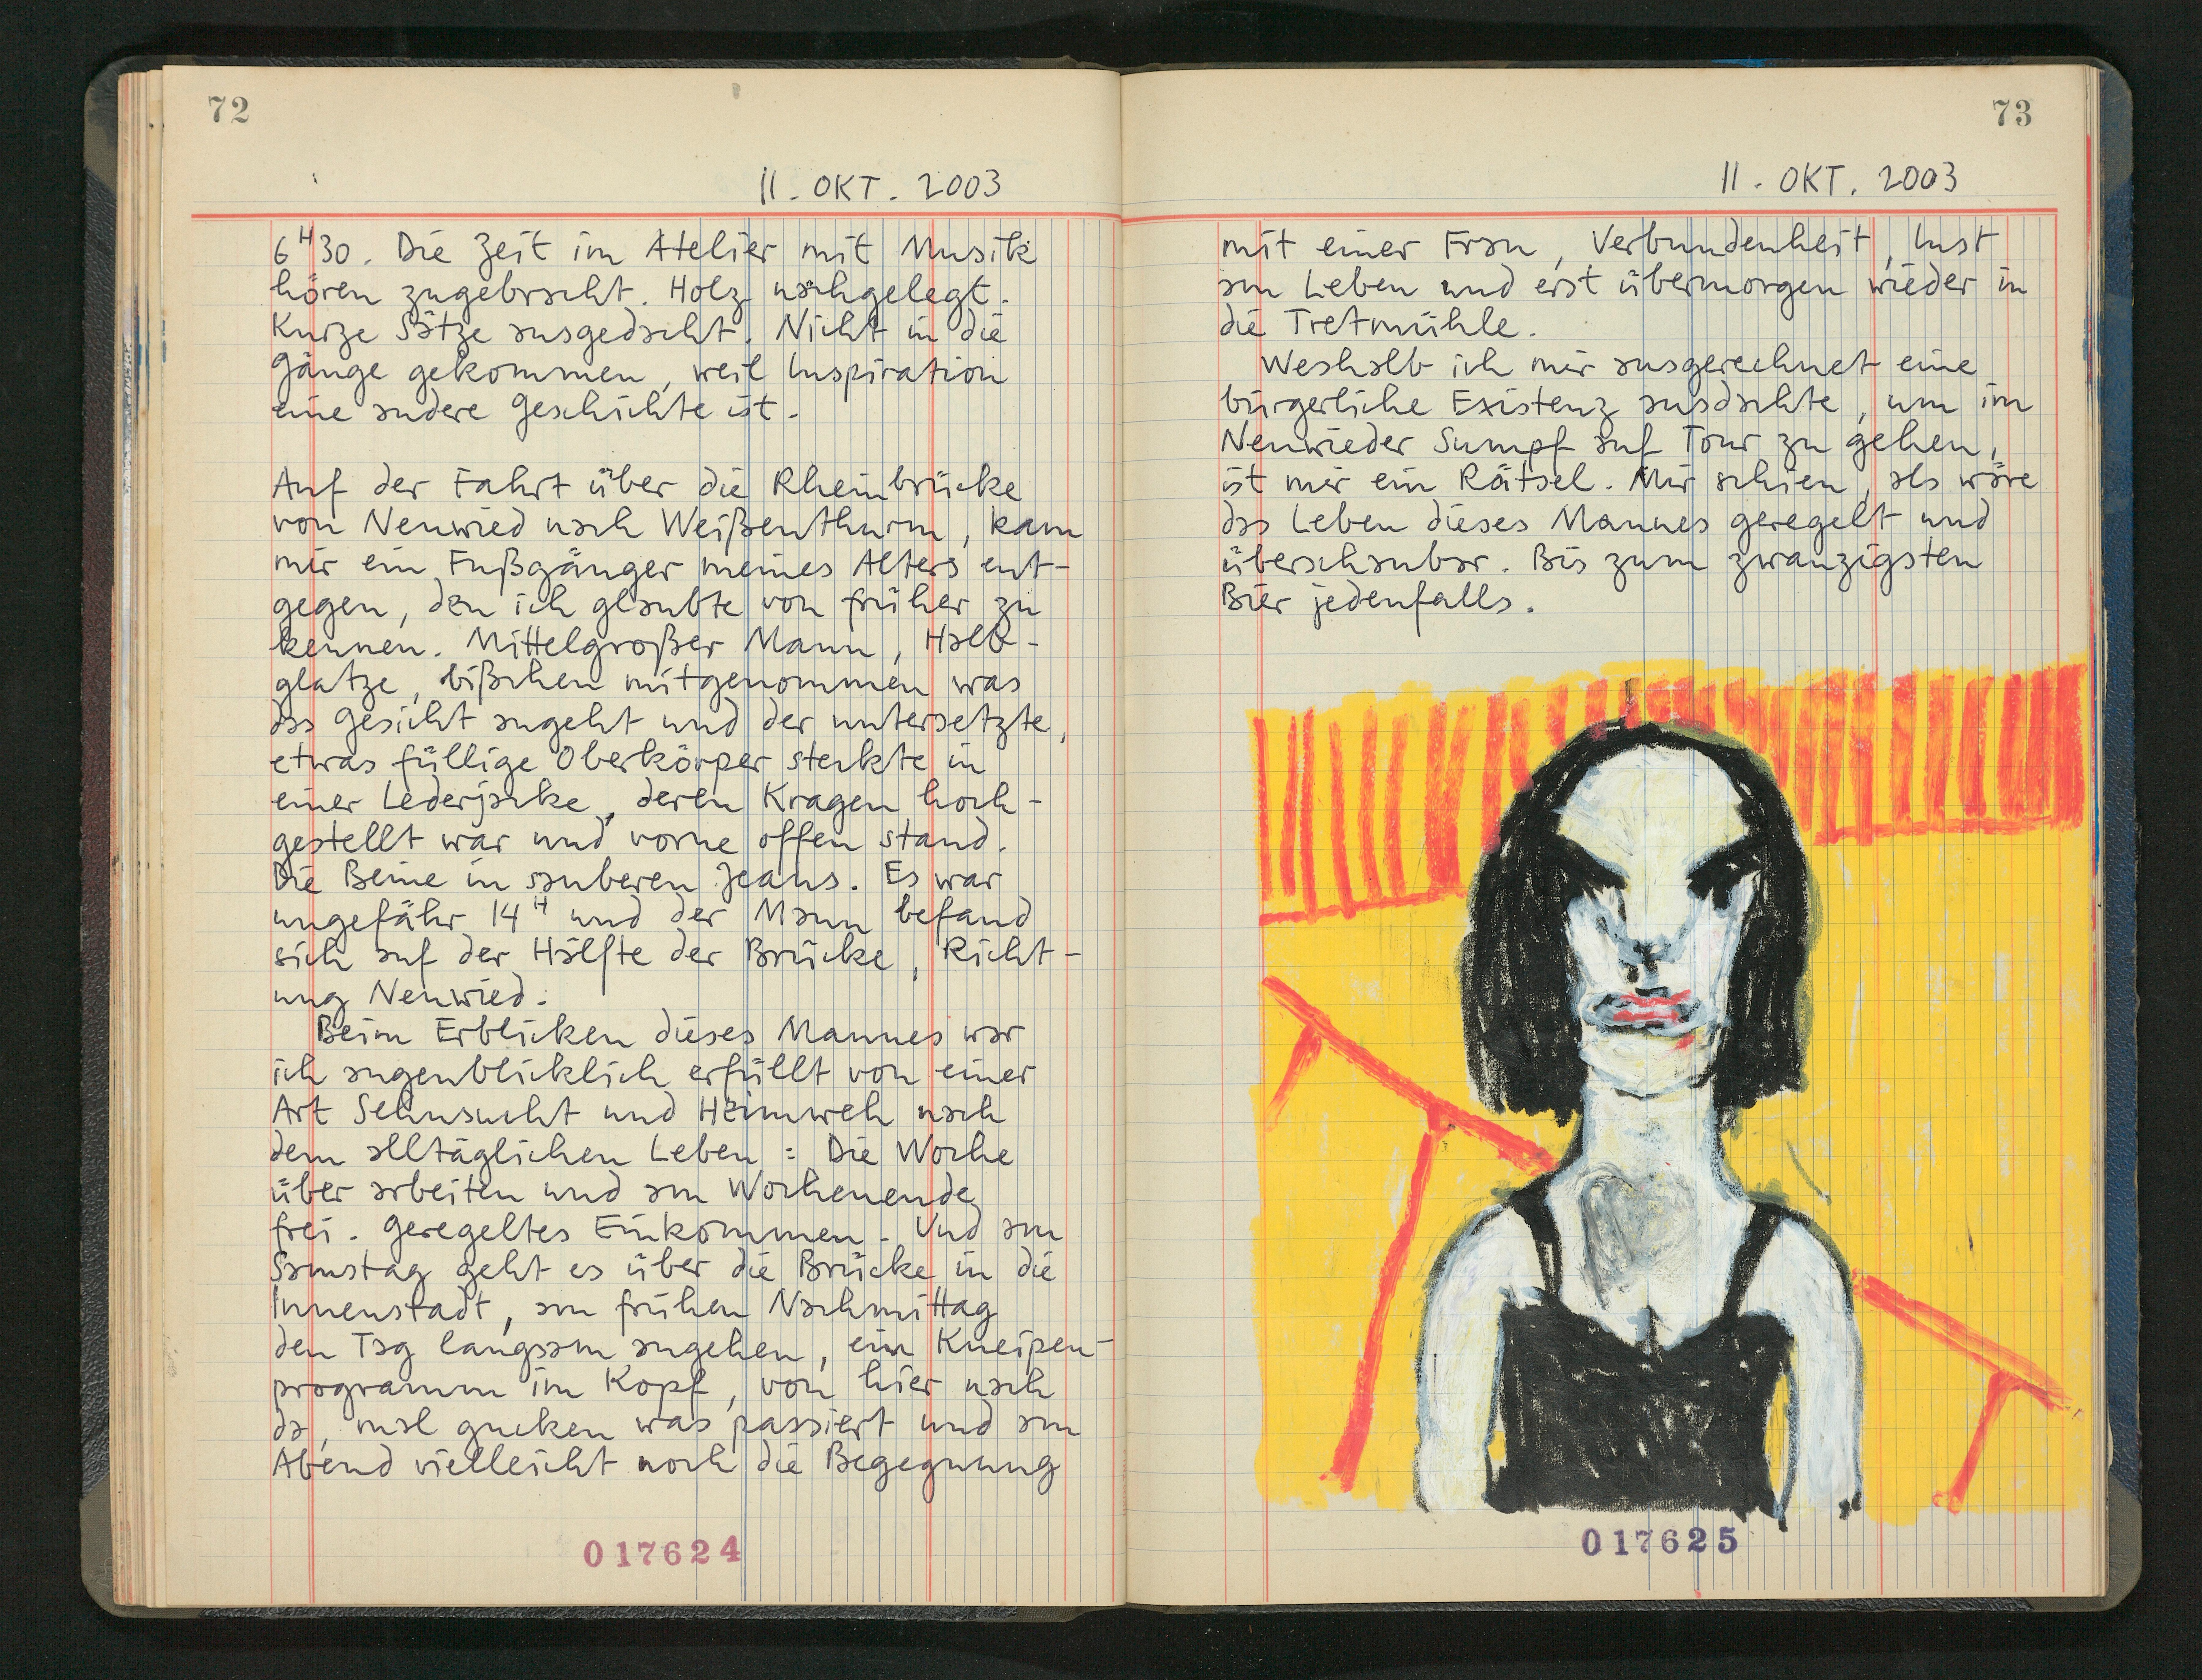 72
11. OKT. 2003
6H30. Die Zeit im Atelier mit Musik
hören zugebracht. Holz nachgelegt.
Kurze Sätze ausgedacht. Nicht in die
Gänge gekommen, weil Inspiration
eine andere Geschichte ist.
Auf der Fahrt über die Rheinbrücke
von Neuwied nach Weißenthurm, kam
mir ein Fußgänger meines Alters ent-
gegen, den ich glaubte von früher zu
kennen. Mittelgroßer Mann, Halb-
glatze, bißchen mitgenommen was
das Gesicht angeht und der untersetzte,
etwas füllige Oberkörper steckte in
einer Lederjacke, deren Kragen hoch-
gestellt war und vorne offen stand.
Die Beine in sauberen Jeans. Es war
ungefähr 14H und der Mann befand
sich auf der Hälfte der Brücke, Richt-
ung Neuwied.
Beim Erblicken dieses Mannes war
ich augenblicklich erfüllt von einer
Art Sehnsucht und Heimweh nach
dem alltäglichen Leben: Die Woche
über arbeiten und am Wochenende
frei. Geregeltes Einkommen. Und am
Samstag geht es über die Brücke in die
Innenstadt, am frühen Nachmittag
den Tag langsam angehen, ein Kneipen-
programm im Kopf, von hier nach
da, mal gucken was passiert und am
Abend vielleicht noch die Begegnung
017624
73
11. OKT. 2003
mit einer Frau, Verbundenheit, Lust
am Leben und erst übermorgen wieder in
die Tretmühle.
Weshalb ich mir ausgerechnet eine
bürgerliche Existenz ausdachte, um im
Neuwieder Sumpf auf Tour zu gehen,
ist mir ein Rätsel. Mir schien, als wäre
das Leben dieses Mannes geregelt und
überschaubar. Bis zum zwanzigsten
Bier jedenfalls.
017625